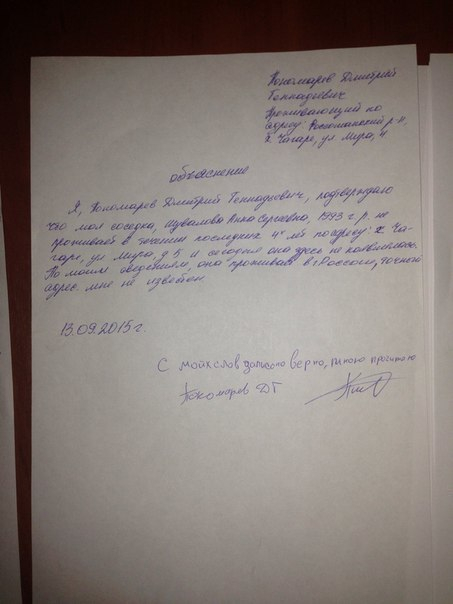 Пономарев Дмитрий
Геннадьевич
Проживающий по
адресу: Россошанский р-н,
х. Чагари, ул Мира, 4
объяснение
Я, Пономарев Дмитрий Геннадьевич, подтверждаю
что моя соседка, Шувалова Анна Сергеевна, 1993 г.р. не
проживает в течении последних 4х лет по адресу: х. Ча-
гари, ул Мира, д 5 и сегодня она здесь не появлялась.
По моим сведениям, она проживает в г. Россошь, точный
адрес мне не известен
13.09.2015 г.
С моих слов записано верно, мною прочитано
Пономарев ДГ